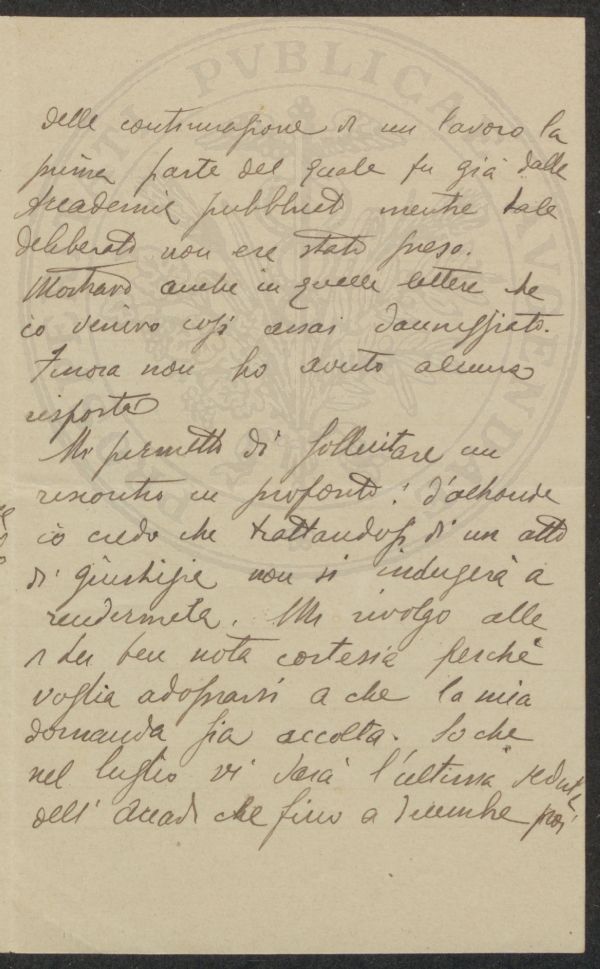 della continuazione di un lavoro la
prima parte del quale fu già dalla
Accademia pubblicato mentre tale
deliberato non era stato preso.
Mostravo anche in quella lettera che
io venivo così assai danneggiato.
Finora non ho avuto alcuna
risposta
Mi permetto di sollecitare un
riscontro in proposito! d'altronde
io credo che trattandosi di un atto
di giustizia non si indugerà a
rendermela. Mi rivolgo alla
di Lei ben nota cortesia perchè
voglia adoprarsi a che la mia
domanda sia accolta. So che
nel luglio vi sarà l'ultima seduta
dell' Accad. che fino a Dicembre poi